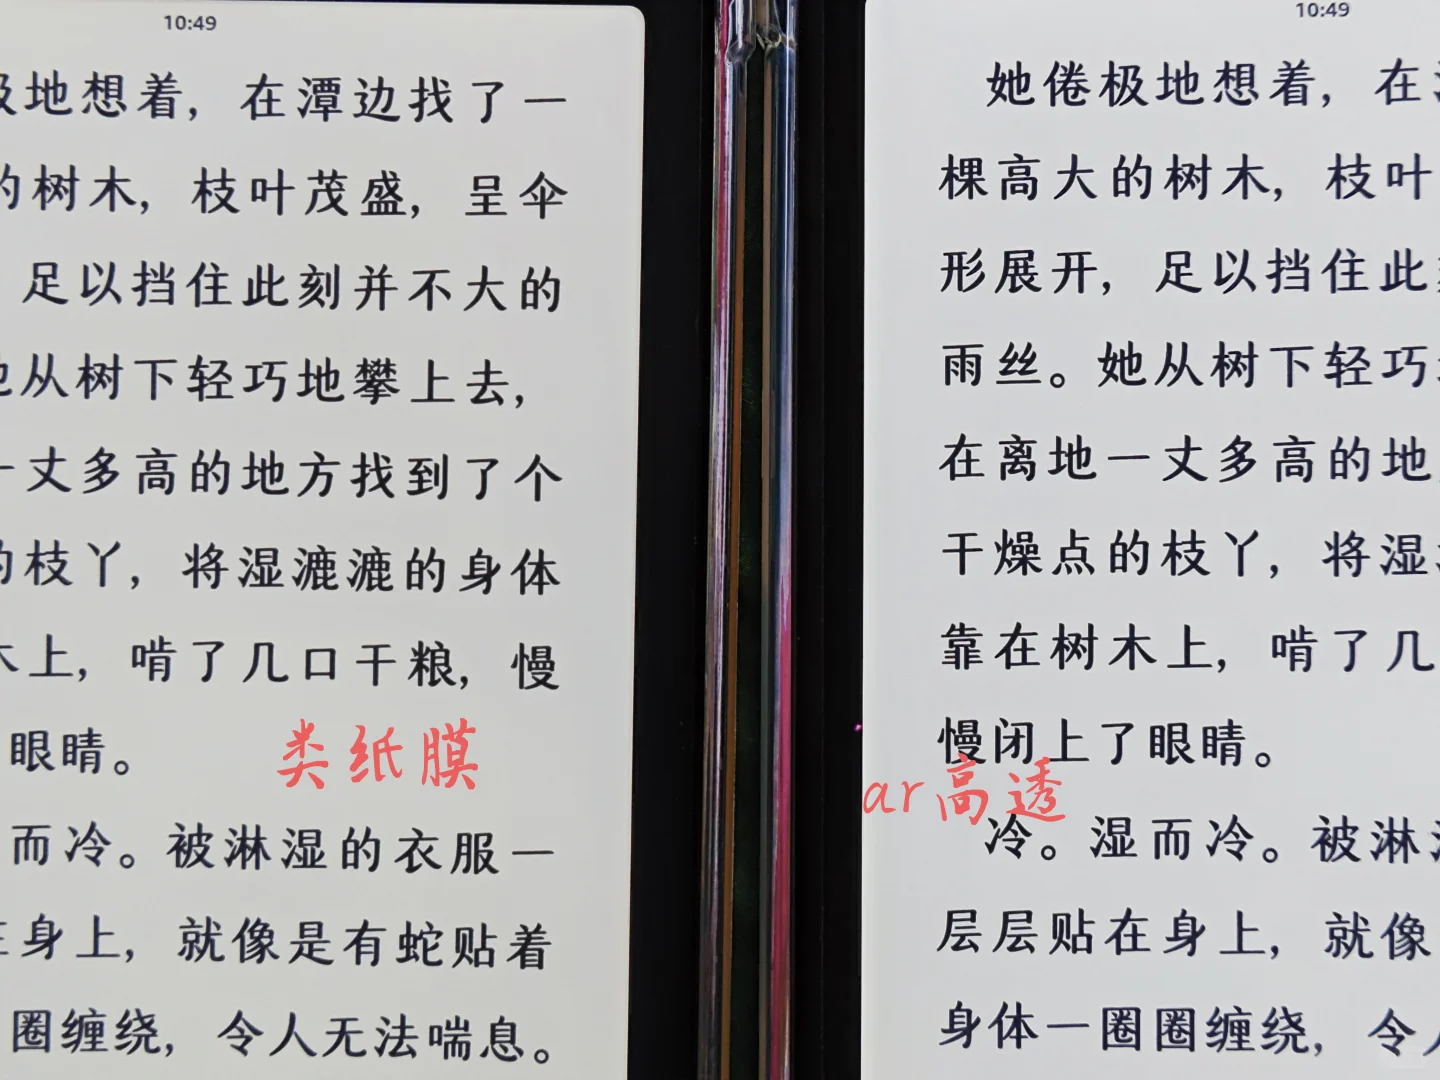 10:49
极地想着，在潭边找了一
的树木，枝叶茂盛，呈伞
足以挡住此刻并不大的
她从树下轻巧地攀上去，
一丈多高的地方找到了个
的枝丫，将湿漉漉的身体
木上，啃了几口干粮，慢
眼睛。
类纸膜
而冷。被淋湿的衣服一
在身上，就像是有蛇贴着
圈缠绕，令人无法喘息。
10:49
她倦极地想着，在
棵高大的树木，枝叶
形展开，足以挡住此
雨丝。她从树下轻巧
在离地一丈多高的地
干燥点的枝丫，将湿
靠在树木上，啃了几
慢闭上了眼睛。
ar高透
冷。湿而冷。被淋
层层贴在身上，就像
身体一圈圈缠绕，令